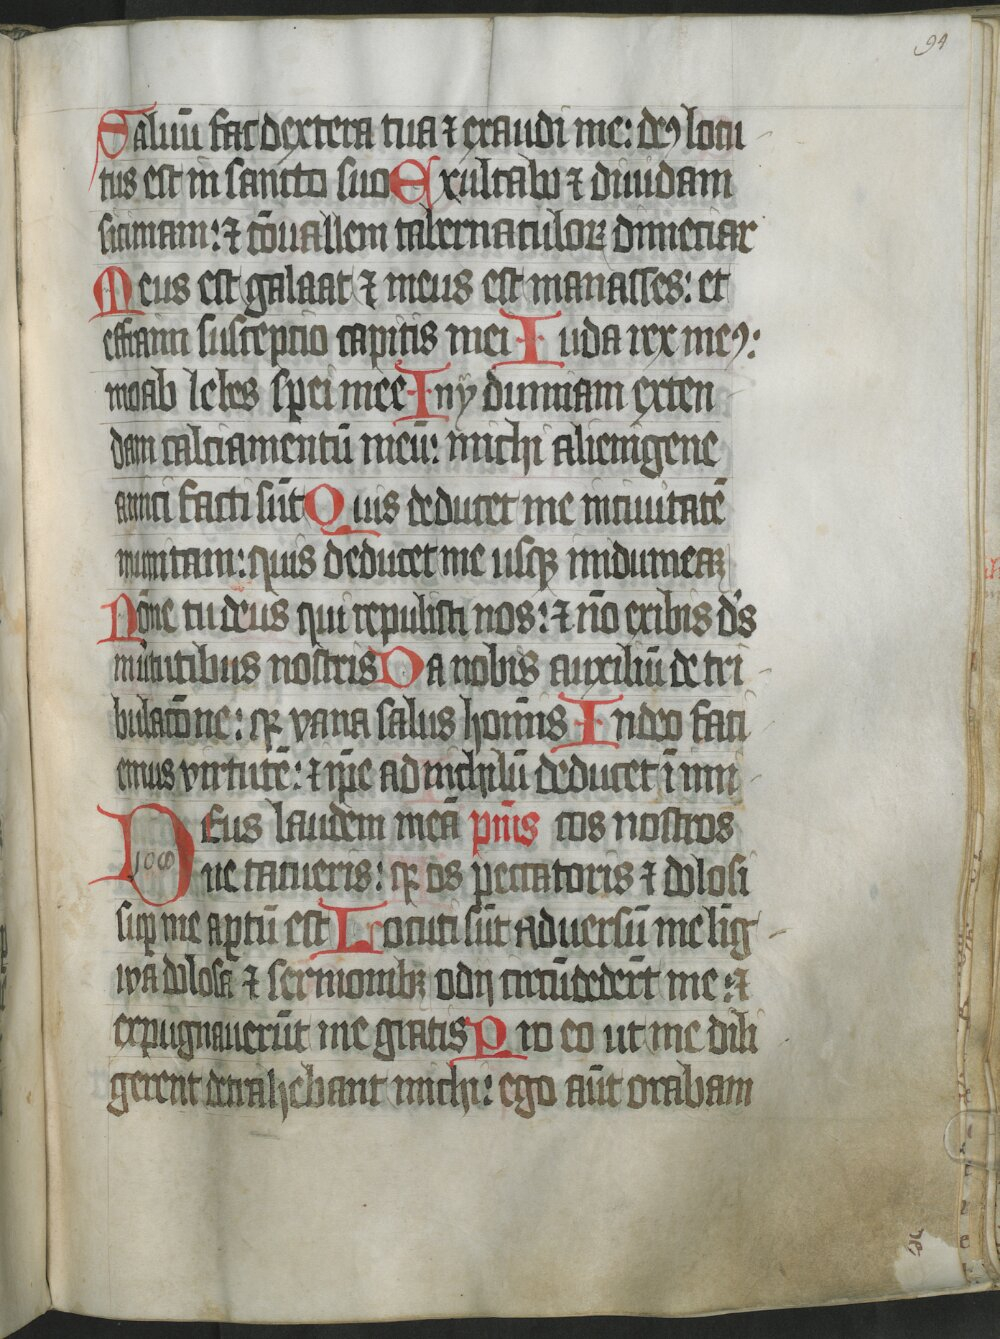 94
Saluū fac dextera tua ⁊ exaudi me: deꝰ locu
tus est in sancto suo Exultabo ⁊ diuidam
sicimam: ⁊ cōuallem tabernaculoꝝ dimeciar
Meus est galaat ⁊ meus est manasses: et
effraim susceptio capitis mei Iuda rex meꝰ:
moab lebes spei mee In ydumiam exten
dam calciamentū meū: michi alienigene
amici facti sūt Quis deducet me inciuitatē
munitam: quis deducet me usqꝫ inidumeaꝫ
Nōne tu deus qui repulisti nos: ⁊ nō exibis d̄s
inuirtutibus nostris Da nobis auxiliū de tri
bulacōne: qꝛ vana salus hoīnis In deo faci
emus virtutē: ⁊ ip̄e ad nichilū deducet īimi
Deus laudem meā pm̄s cos nostros
108
ne tacueris: qꝛ os peccatoris ⁊ dolosi
suꝑ me aꝑtū est Locuti sūt aduersū me liḡ
wa dolosa ⁊ sermonibꝫ odij circūdederūt me: ⁊
expugnauerūt me gratis Pro eo ut me dili
gerent detrahebant michi: ego aūt orabam